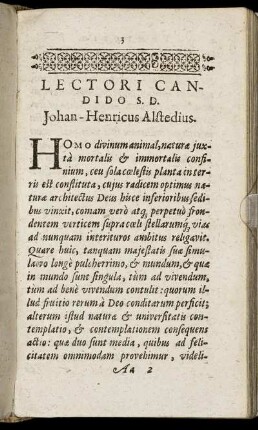 3
LECTORI CAN-
DIDO S. D.
Johan-Henricus Alstedius.
HOMO divinum animal, naturæ jux-
tà mortalis & immortalis confi-
nium, ceu sola cœlestis planta in ter-
ris est constituta, cujus radicem optimus na-
turæ architectus Deus hisce inferioribus sedi-
bus vinxit, comam verò atq, perpetuò fron-
dentem verticem supra cœli stellarumq, viae
ad nunquam interituros ambitus religavit.
Quare huic, tanquam majestatis suæ simu-
lacro longè pulcherrimo, & mundum, & quæ
in mundo sunt singula, tùm ad vivendum,
tùm ad benè vivendum contulit: quorum il-
lud fruitio rerum à Deo conditarum perficit;
alterum istud naturæ & universitatis con-
templatio, & contemplationem consequens
actio: quæ duo sunt media, quibus ad feli-
citatem omnimodam provehimur, videli-
Aa 2